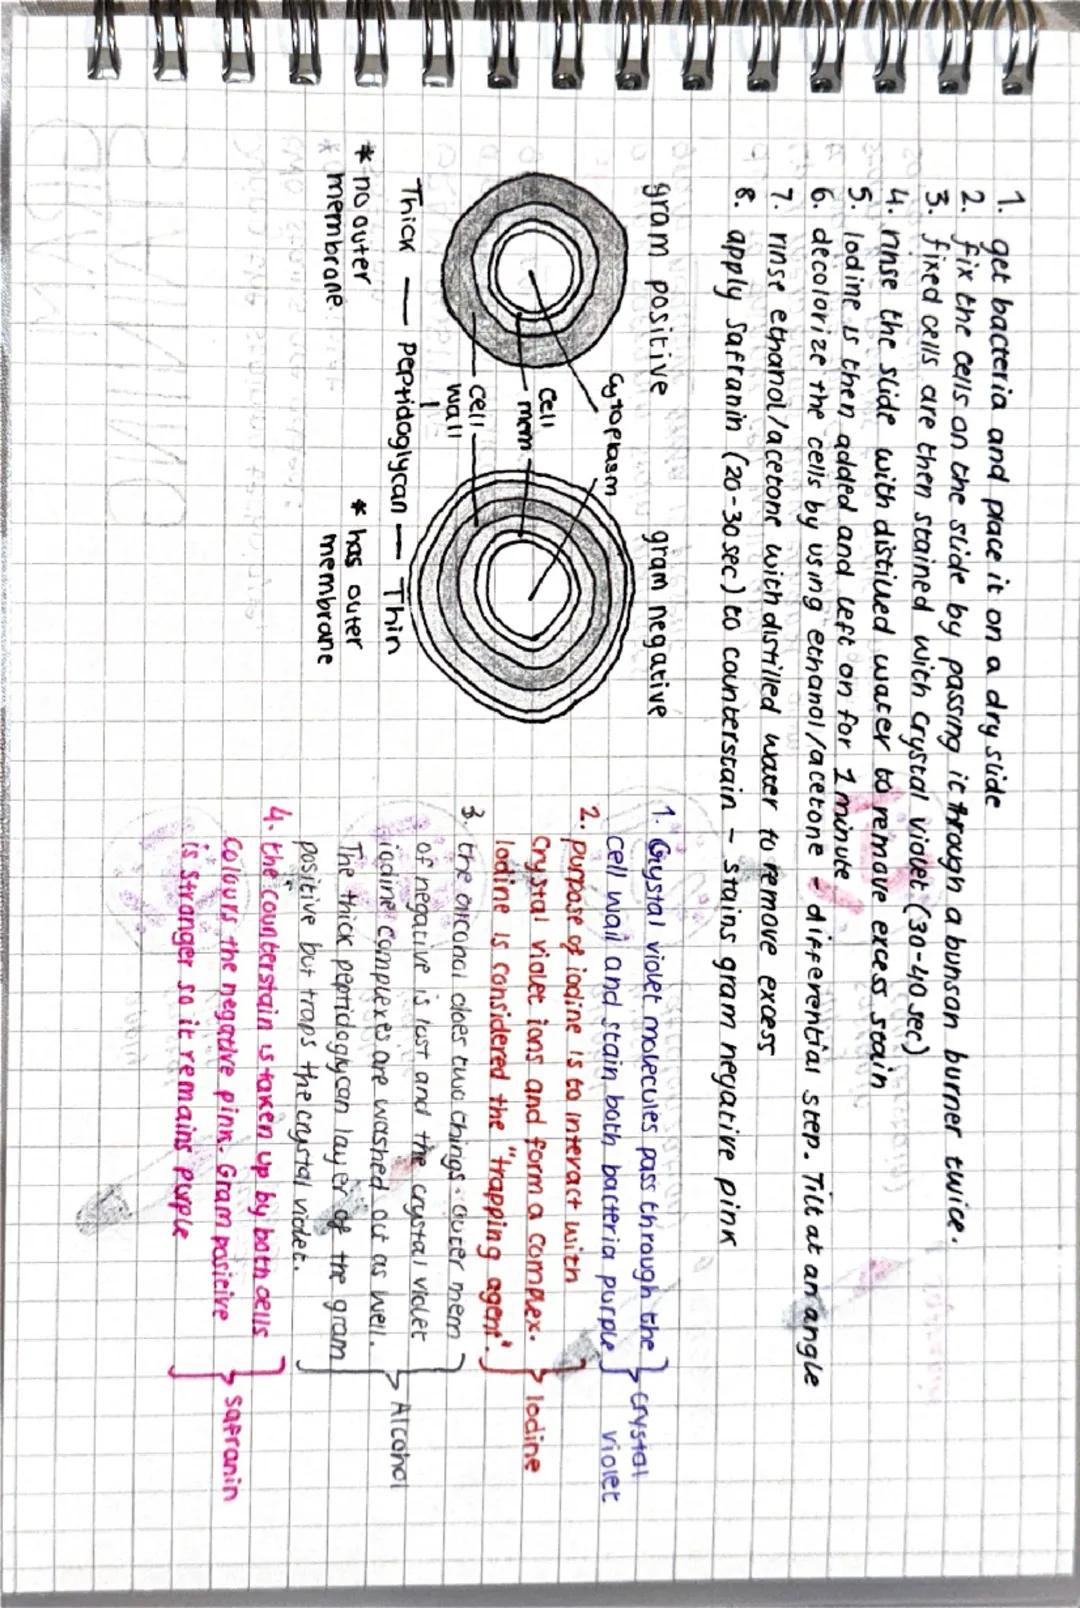 1. get bacteria and place it on a dry slide
2. fix the cells on the slide by passing it through a bunsan burner twice.
3. fixed cells are then stained with crystal violet (30-40 sec)
4. rinse the slide with distilled water to remove excess stain
5. Iodine is then added and left on for 1 minute
6. decolorize the cells by using ethanol/acetone - differential step. Tilt at an angle
7. rinse ethanol/acetone with distilled water to remove excess
8. apply Safranin (20-30 sec) to counterstain - Stains gram negative pink
gram positive
gram negative
cytoplasm
cell
mem
cell
wall
Thick — peptidoglycan — Thin
* no outer
membrane
* has outer
membrane
1. Crystal violet molecules pass through the
cell wall and stain both bacteria purple
crystal
violet
2. purpose of iodine is to interact with
Crystal violet ions and form a complex.
Iodine is considered the "trapping agent".
Iodine
3. the alcohol does two things. outer mem
of negative is lost and the crystal violet
iodine complexes are washed out as well.
The thick peptidoglycan layer of the gram
positive but traps the crystal violet.
Alcohol
4. the counterstain is taken up by both cells
Colours the negative pink. Gram positive
is stronger so it remains purple
safranin